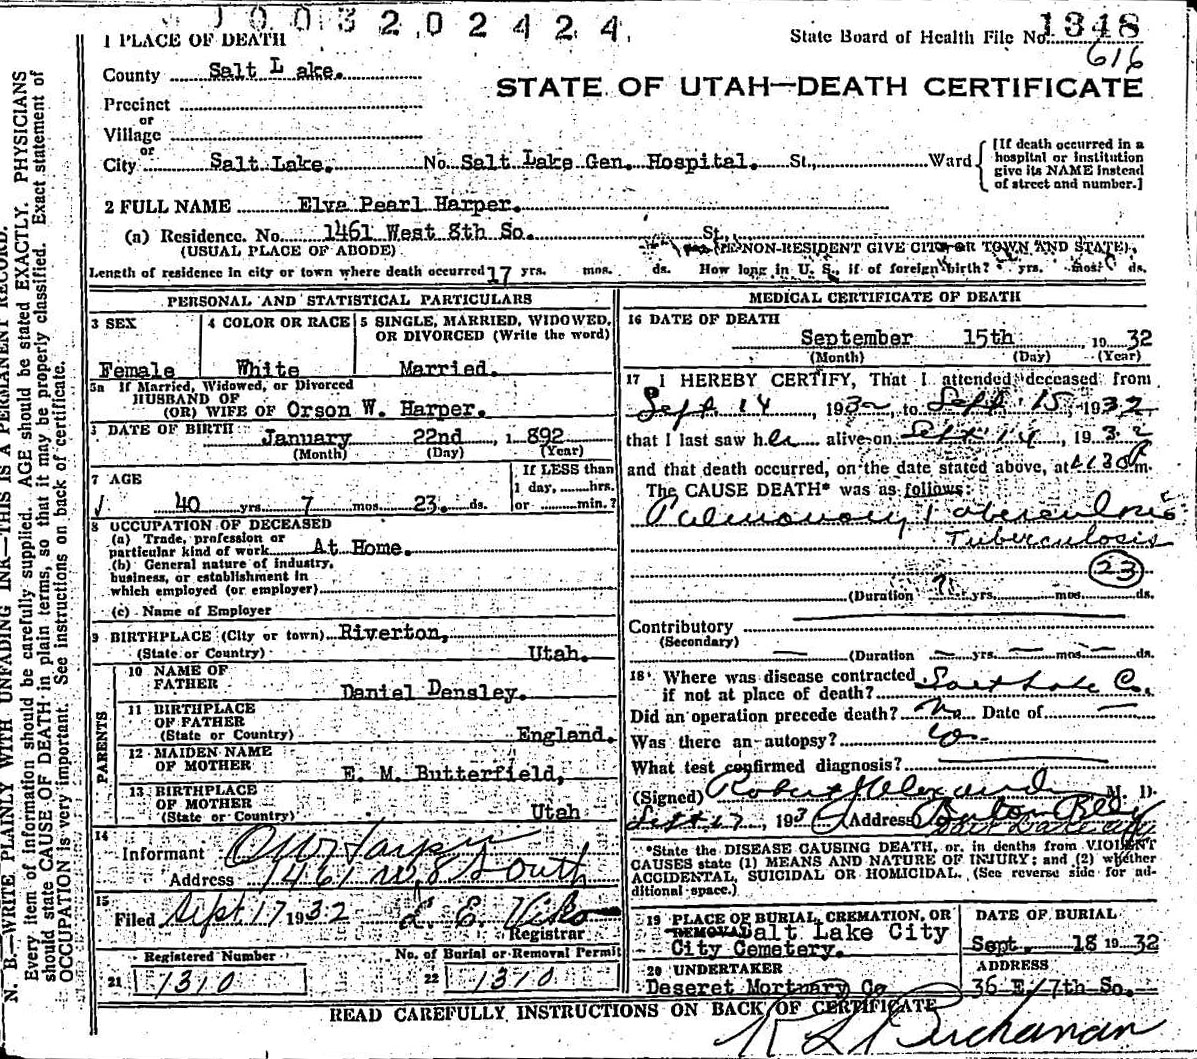 1003202424
State Board of Health File No. 1348
616
1 PLACE OF DEATH
County Salt Lake.
STATE OF UTAH—DEATH CERTIFICATE
Precinct
or
Village
or
City Salt Lake. No. Salt Lake Gen. Hospital. St., Ward
[If death occurred in a hospital or institution give its NAME instead of street and number.]
2 FULL NAME Elva Pearl Harper.
(a) Residence. No. 1461 West 8th So. St.
(USUAL PLACE OF ABODE) (IF NON-RESIDENT GIVE CITY OR TOWN AND STATE)
Length of residence in city or town where death occurred 17 yrs. mos. ds. How long in U. S., if of foreign birth? yrs. mos. ds.
PERSONAL AND STATISTICAL PARTICULARS
3 SEX
Female
4 COLOR OR RACE
White
5 SINGLE, MARRIED, WIDOWED,
OR DIVORCED (Write the word)
Married.
5a If Married, Widowed, or Divorced
HUSBAND OF
(OR) WIFE OF Orson W. Harper.
DATE OF BIRTH January 22nd, 1892
(Month) (Day) (Year)
7 AGE
40 yrs. 7 mos. 23. ds.
If LESS than
1 day, hrs.
or min.?
8 OCCUPATION OF DECEASED
(a) Trade, profession or
particular kind of work At Home.
(b) General nature of industry,
business, or establishment in
which employed (or employer)
(c) Name of Employer
9 BIRTHPLACE (City or town) Riverton,
(State or Country) Utah.
PARENTS
10 NAME OF
FATHER Daniel Densley.
11 BIRTHPLACE
OF FATHER
(State or Country) England.
12 MAIDEN NAME
OF MOTHER E. M. Butterfield,
13 BIRTHPLACE
OF MOTHER
(State or Country) Utah
14
Informant O W Harper
Address 1461 W 8 South
15
Filed Sept 17 1932
Registrar
Registered Number
21 1310
No. of Burial or Removal Permit
22 1310
MEDICAL CERTIFICATE OF DEATH
16 DATE OF DEATH
September 15th 1932
(Month) (Day) (Year)
17 I HEREBY CERTIFY, That I attended deceased from
Sept 14, 1932, to Sept 15, 1932
that I last saw her alive on Sept 14, 1932
and that death occurred, on the date stated above, at 1130 P m.
The CAUSE DEATH* was as follows:
Pulmonary Tuberculosis
Tuberculosis
23
(Duration ? yrs. mos. ds.
Contributory
(Secondary)
(Duration — yrs. — mos. — ds.
18 Where was disease contracted
if not at place of death? Salt Lake Co.
Did an operation precede death? No Date of —
Was there an autopsy? no
What test confirmed diagnosis?
(Signed) Robert Alexander M. D.
Sept 17, 193 (Address) Boston Bldg
Salt Lake City
*State the DISEASE CAUSING DEATH, or, in deaths from VIOLENT
CAUSES state (1) MEANS AND NATURE OF INJURY; and (2) whether
ACCIDENTAL, SUICIDAL OR HOMICIDAL. (See reverse side for ad-
ditional space.)
19 PLACE OF BURIAL, CREMATION, OR
REMOVAL Salt Lake City
City Cemetery.
DATE OF BURIAL
Sept. 18 1932
20 UNDERTAKER
Deseret Mortuary Co
ADDRESS
36 E. 7th So.
READ CAREFULLY INSTRUCTIONS ON BACK OF CERTIFICATE
Buchanan
N. B.—WRITE PLAINLY WITH UNFADING INK—THIS IS A PERMANENT RECORD.
Every item of information should be carefully supplied. AGE should be stated EXACTLY. PHYSICIANS
should state CAUSE OF DEATH in plain terms, so that it may be properly classified. Exact statement of
OCCUPATION is very important. See instructions on back of certificate.